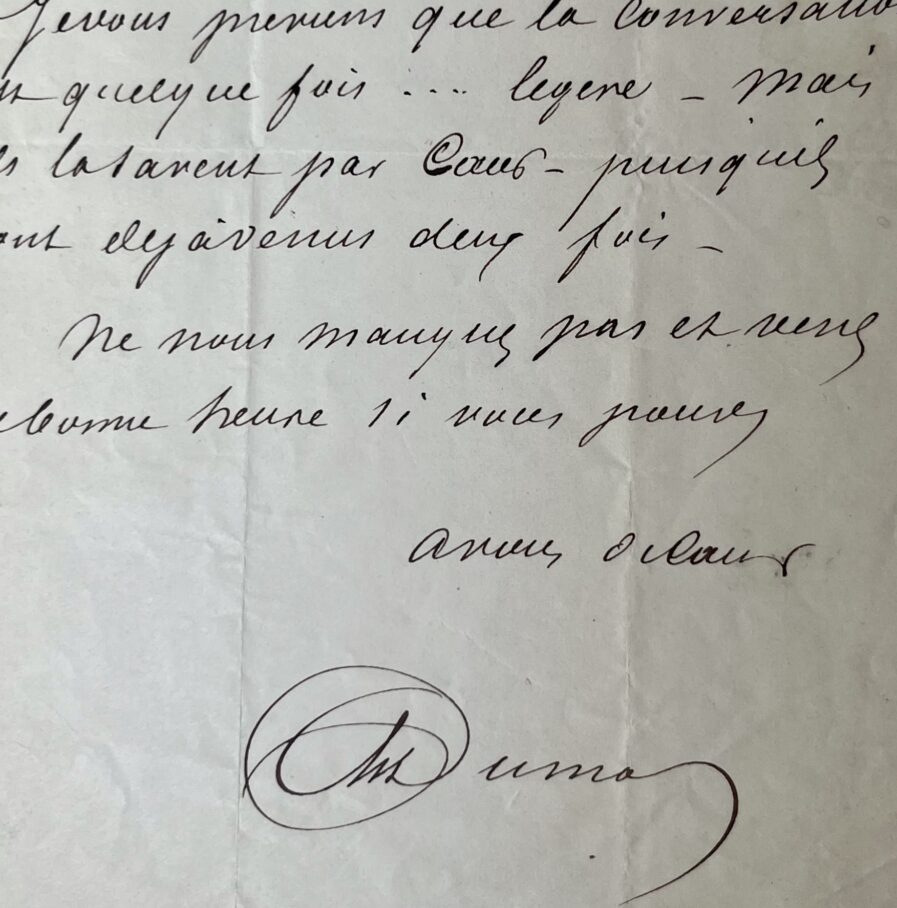 Je vous previens que la Conversatio
st quelque fois .... legere – Mais
ls la savent par Cœur – puisquils
ont deja venus deux fois –
Ne nous manquez pas et venez
bonne heure si vous pouvez
a vous de Cœur
Alex Dumas